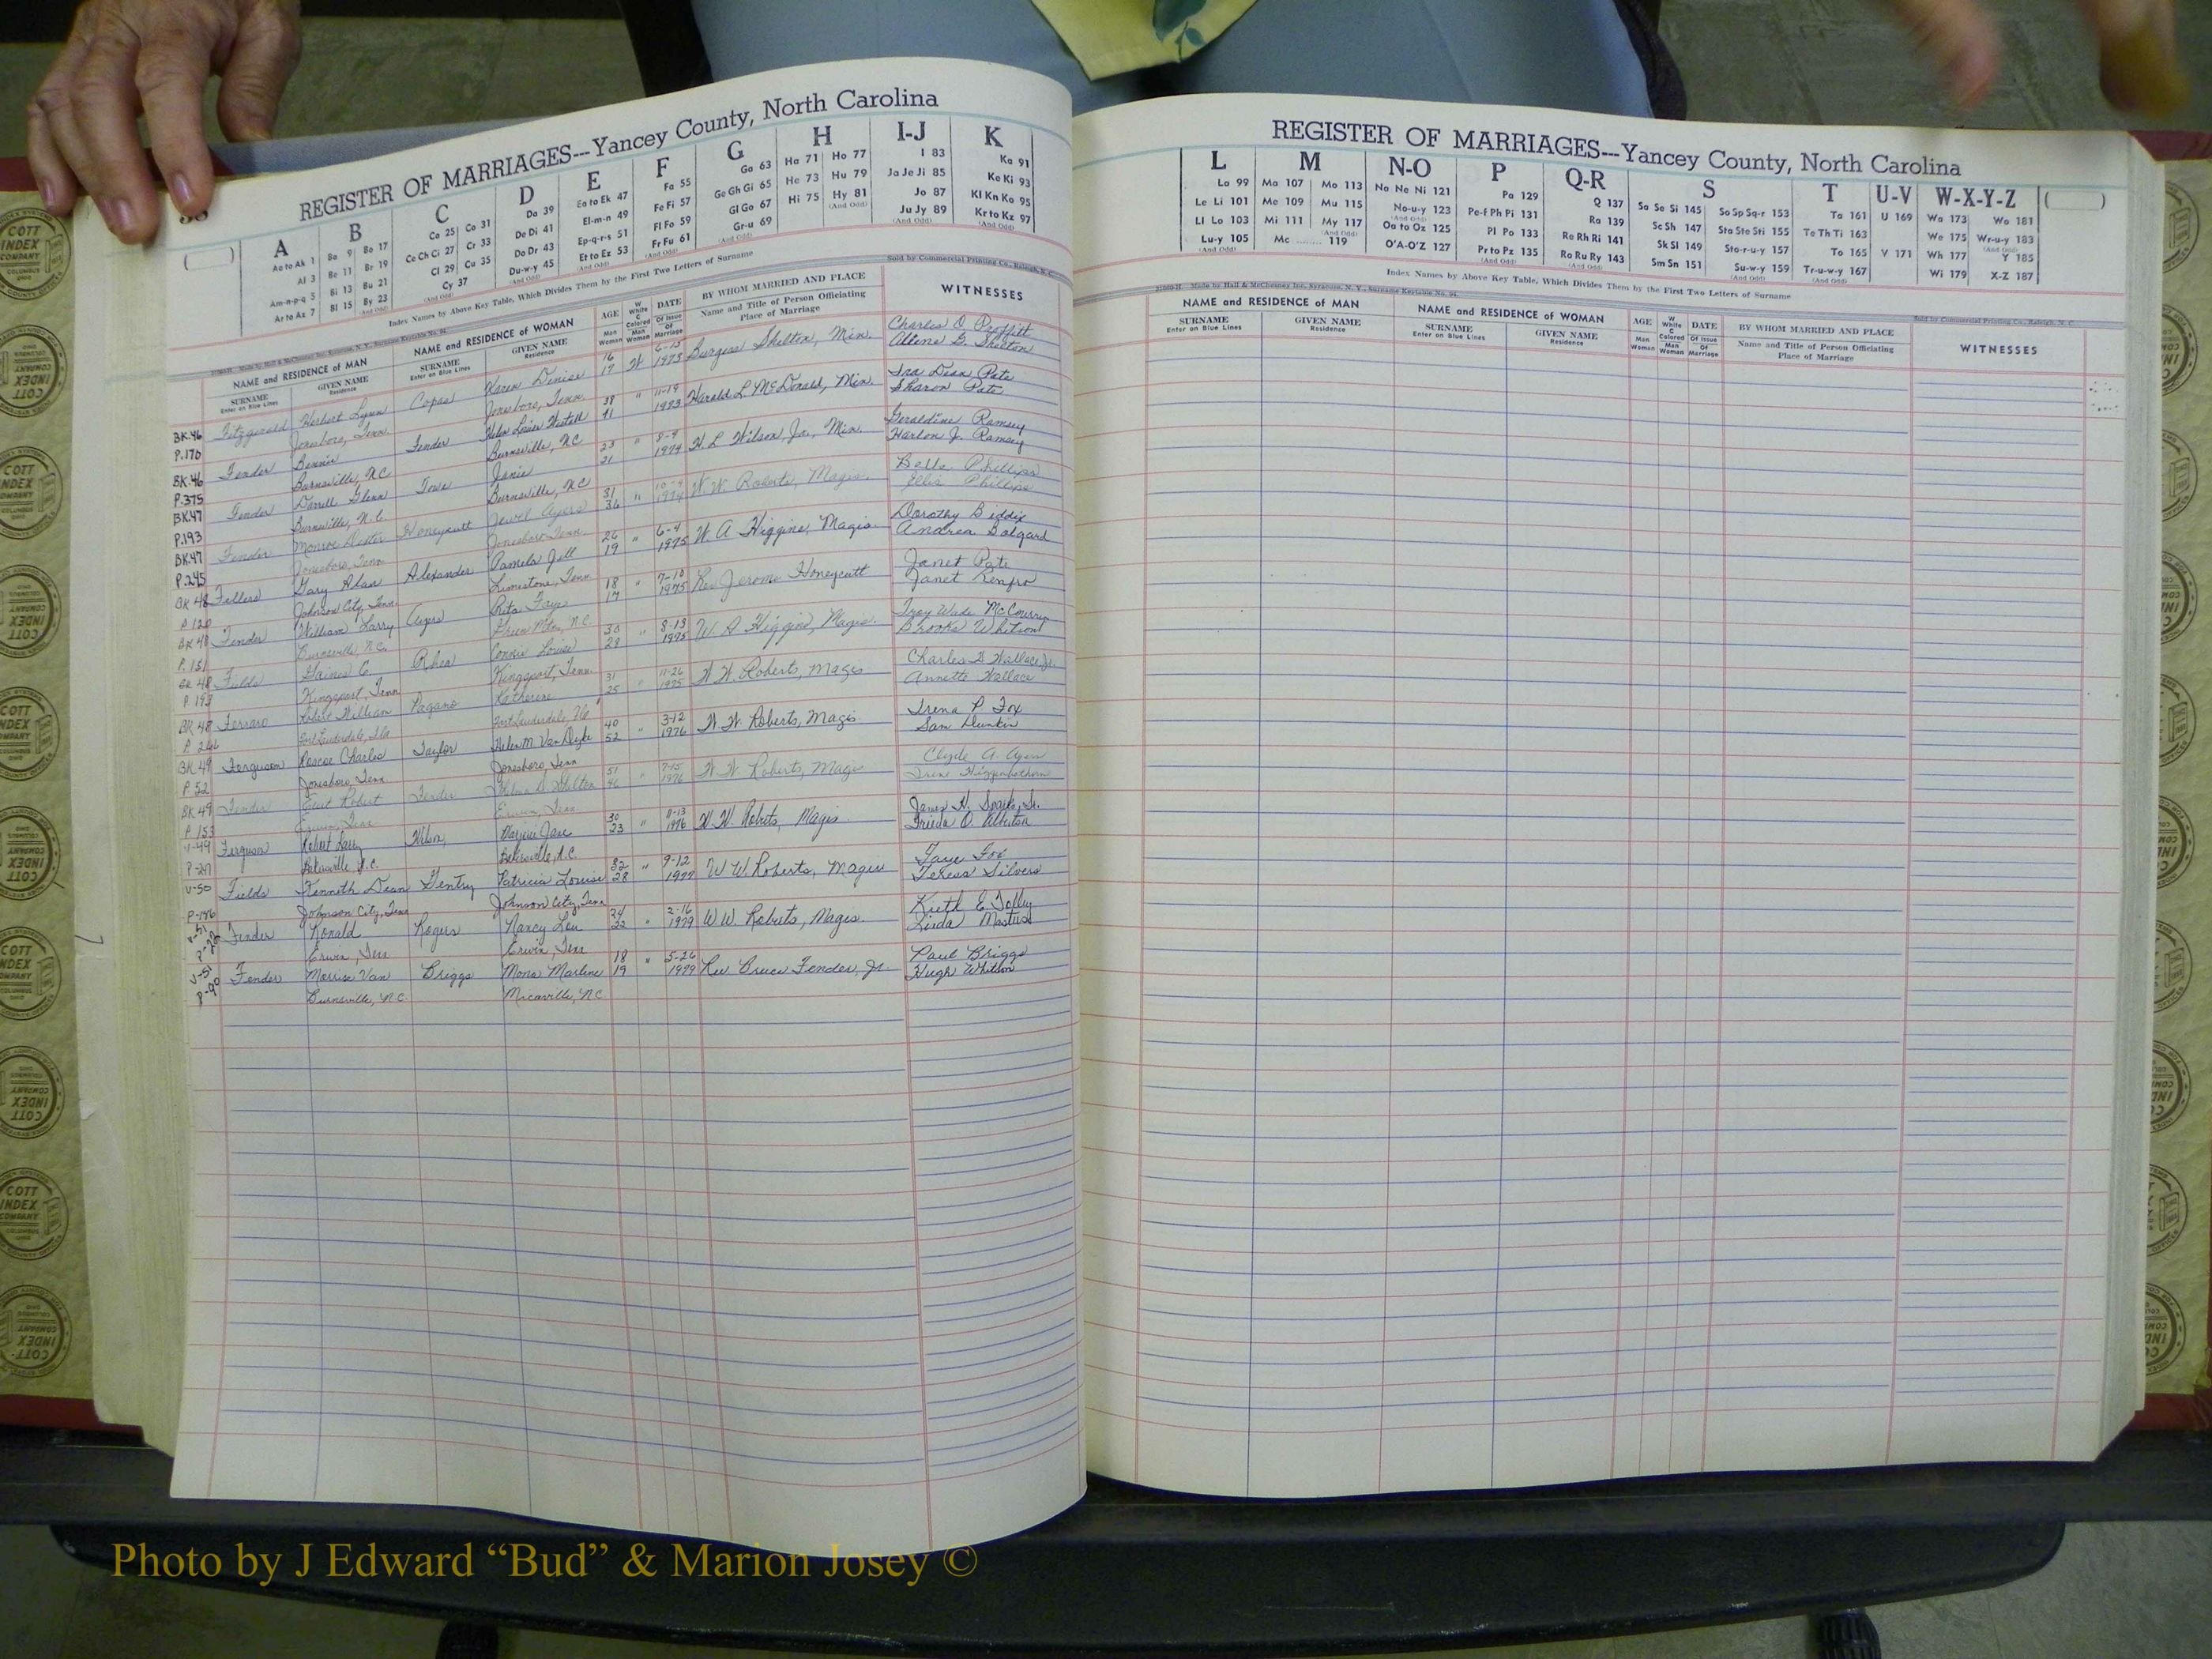 REGISTER OF MARRIAGES---Yancey County, North Carolina
A B C D E F G H I-J K
Aa to Ak 1 Ba 9 Bo 17 Ca 25 Co 31 Da 39 Ea to Ek 47 Fa 55 Ga 63 Ha 71 Ho 77 I 83 Ka 91
Al 3 Be 11 Br 19 Ce Ch Ci 27 Cr 33 De Di 41 El-m-n 49 Fe Fi 57 Ge Gh Gi 65 He 73 Hu 79 Ja Je Ji 85 Ke Ki 93
Am-n-p-q 5 Bi 13 Bu 21 Cl 29 Cu 35 Do Dr 43 Ep-q-r-s 51 Fl Fo 59 Gl Go 67 Hi 75 Hy 81 Jo 87 Kl Kn Ko 95
Ar to Az 7 Bl 15 By 23 Cy 37 Du-w-y 45 Et to Ez 53 Fr Fu 61 Gr-u 69 (And Odd) Ju Jy 89 Kr to Kz 97
Index Names by Above Key Table, Which Divides Them by the First Two Letters of Surname
Sold by Commercial Printing Co., Raleigh, N. C.
NAME and RESIDENCE of MAN NAME and RESIDENCE of WOMAN AGE W White C Colored DATE BY WHOM MARRIED AND PLACE WITNESSES
SURNAME Enter on Blue Lines GIVEN NAME Residence SURNAME Enter on Blue Lines GIVEN NAME Residence Man Woman Man Woman Of Issue Of Marriage Name and Title of Person Officiating Place of Marriage
BK.46 Fitzgerald Herbert Lynn Copas Karen Denise 16 17 W 6-15 1973 Burgess Shelton, Min. Charles O. Proffitt
P.170 Jonesboro, Tenn. Jonesboro, Tenn. Allene G. Shelton
BK.46 Fender Bennie Fender Helen Louise 38 41 " 11-19 1983 Harold L. McDonald, Min. Ira Dean Pate
P.375 Burnsville, N.C. Burnsville, N.C. Sharon Pate
BK.47 Fender Darrell Glenn Towe Janie 23 21 " 8-9 1974 H L Wilson, Jr., Min. Geraldine Ramsey
P.193 Burnsville, N.C. Burnsville, N.C. Harlon J. Ramsey
BK.47 Fender Monroe Honeycutt Jewel Ayers 31 36 " 1974 W. W. Roberts, Magis. Belle Phillips
P.245 Jonesboro, Tenn. Jonesboro, Tenn. Ellis Phillips
BK 48 Fellers Gary Alan Alexander Pamela Jill 26 19 " 6-4 1975 W. A. Higgins, Magis. Dorothy Biddix
P.120 Johnson City, Tenn. Limestone, Tenn. Andrea Balgard
BK 48 Fender William Larry Ayers Rita Faye 18 17 " 7-10 1975 Rev. Jerome Honeycutt Janet Pate
P.151 Burnsville, N.C. Green Mtn., N.C. Janet Renfro
BK 48 Fields Gaines C. Rhea Connie Louise 30 28 " 8-13 1975 W. A. Higgins, Magis. Troy Wade McCourry
P.193 Kingsport, Tenn. Kingsport, Tenn. Brooks Whitson
BK 48 Ferraro Robert William Pagano Katherine 31 25 " 11-26 1975 W. W. Roberts, Magis Charles D. Wallace Jr.
Fort Lauderdale, Fla Fort Lauderdale, Fla Annette Wallace
BK 49 Ferguson Roscoe Charles Taylor Helen M. Van Dyke 40 52 " 3-12 1976 W. W. Roberts, Magis Irena P. Fox
P 52 Jonesboro, Tenn Jonesboro, Tenn Sam Dunkin
BK 49 Fender Robert Fender Shelton 51 46 " 7-15 1976 W. W. Roberts, Magis Clyde A. Ayers
P 153 Erwin, Tenn Erwin, Tenn
V-49 Ferguson Robert Larry Wilson Jane 30 23 " 8-13 1976 W. W. Roberts, Magis James H. Sparks, Sr.
Bakersville N.C. Bakersville, N.C.
V-50 Fields Kenneth Dean Gentry Patricia Louise 32 28 " 9-12 1977 W W Roberts, Magis Faye Fox
P-186 Johnson City, Tenn Johnson City, Tenn Teresa Silvers
V-51 Fender Ronald Rogers Nancy Lou 24 22 " 2-16 1979 W W. Roberts, Magis. Kieth E. Tolley
Erwin, Tenn Erwin, Tenn Linda Masters
V-51 Fender Morris Van Briggs Mona Marlene 18 19 " 5-26 1979 Rev Bruce Fender, Jr. Paul Briggs
P-90 Burnsville, N.C. Micaville, N.C. Hugh Whitson
REGISTER OF MARRIAGES---Yancey County, North Carolina
L M N-O P Q-R S T U-V W-X-Y-Z
La 99 Ma 107 Mo 113 Na Ne Ni 121 Pa 129 Q 137 Sa Se Si 145 So Sp Sq-r 153 Ta 161 U 169 Wa 173 Wo 181
Le Li 101 Me 109 Mu 115 No-u-y 123 Pe-f Ph Pi 131 Ra 139 Sc Sh 147 Sta Ste Sti 155 Te Th Ti 163 We 175 Wr-u-y 183
Ll Lo 103 Mi 111 My 117 Oa to Oz 125 Pl Po 133 Re Rh Ri 141 Sk Sl 149 Sto-r-u-y 157 To 165 V 171 Wh 177 Y 185
Lu-y 105 Mc ........ 119 O'A-O'Z 127 Pr to Pz 135 Ro Ru Ry 143 Sm Sn 151 Su-w-y 159 Tr-u-w-y 167 Wi 179 X-Z 187
Index Names by Above Key Table, Which Divides Them by the First Two Letters of Surname
Made by Hall & McChesney Inc. Syracuse, N. Y., Surname Keytable No. 84
Sold by Commercial Printing Co., Raleigh, N. C.
NAME and RESIDENCE of MAN NAME and RESIDENCE of WOMAN AGE W White C Colored DATE BY WHOM MARRIED AND PLACE WITNESSES
SURNAME Enter on Blue Lines GIVEN NAME Residence SURNAME Enter on Blue Lines GIVEN NAME Residence Man Woman Man Woman Of Issue Of Marriage Name and Title of Person Officiating Place of Marriage
COTT INDEX COMPANY COLUMBUS OHIO
Photo by J Edward “Bud” & Marion Josey ©